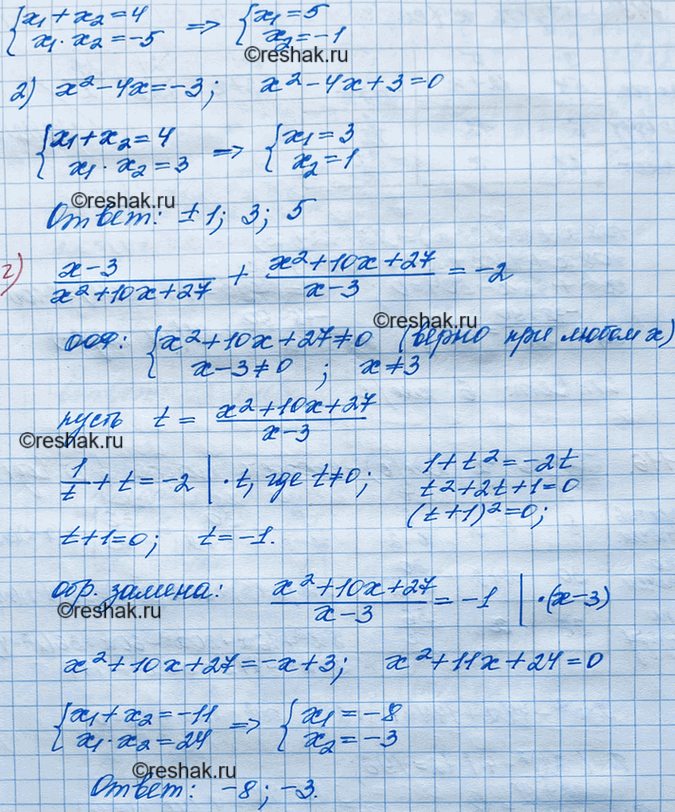 {x₁ + x₂ = 4 ⟹ {x₁ = 5
x₁ · x₂ = −5 x₂ = −1
2) x² − 4x = −3; x² − 4x + 3 = 0
{x₁ + x₂ = 4 ⟹ {x₁ = 3
x₁ · x₂ = 3 x₂ = 1
©reshak.ru
Ответ: ±1; 3; 5
г) (x−3)/(x²+10x+27) + (x²+10x+27)/(x−3) = −2
©reshak.ru
ООФ: {x²+10x+27≠0 (верно при любом x)
x−3≠0 ; x≠3
пусть t = (x²+10x+27)/(x−3)
©reshak.ru
1/t + t = −2 | · t, где t≠0; 1+t² = −2t
t²+2t+1=0
(t+1)²=0;
t+1=0; t=−1.
обр. замена: (x²+10x+27)/(x−3) = −1 | ·(x−3)
©reshak.ru
x²+10x+27=−x+3; x²+11x+24=0
{x₁+x₂=−11 ⟹ {x₁=−8
x₁·x₂=24 x₂=−3
©reshak.ru
Ответ: −8; −3.